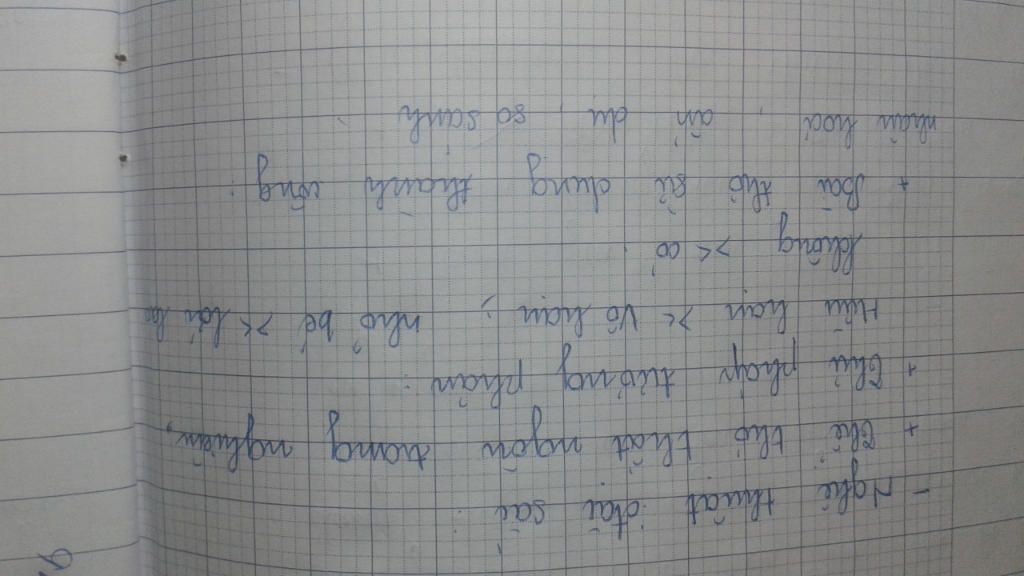 - Nghệ thuật đặc sắc :
+ Thể thơ thất ngôn trang nghiêm,
+ Thủ pháp tương phản :
Hữu hạn >< Vô hạn ; nhỏ bé >< lớn lao
không >< có .
+ Bài thơ sử dụng thành công :
nhân hoá , ẩn dụ , so sánh .